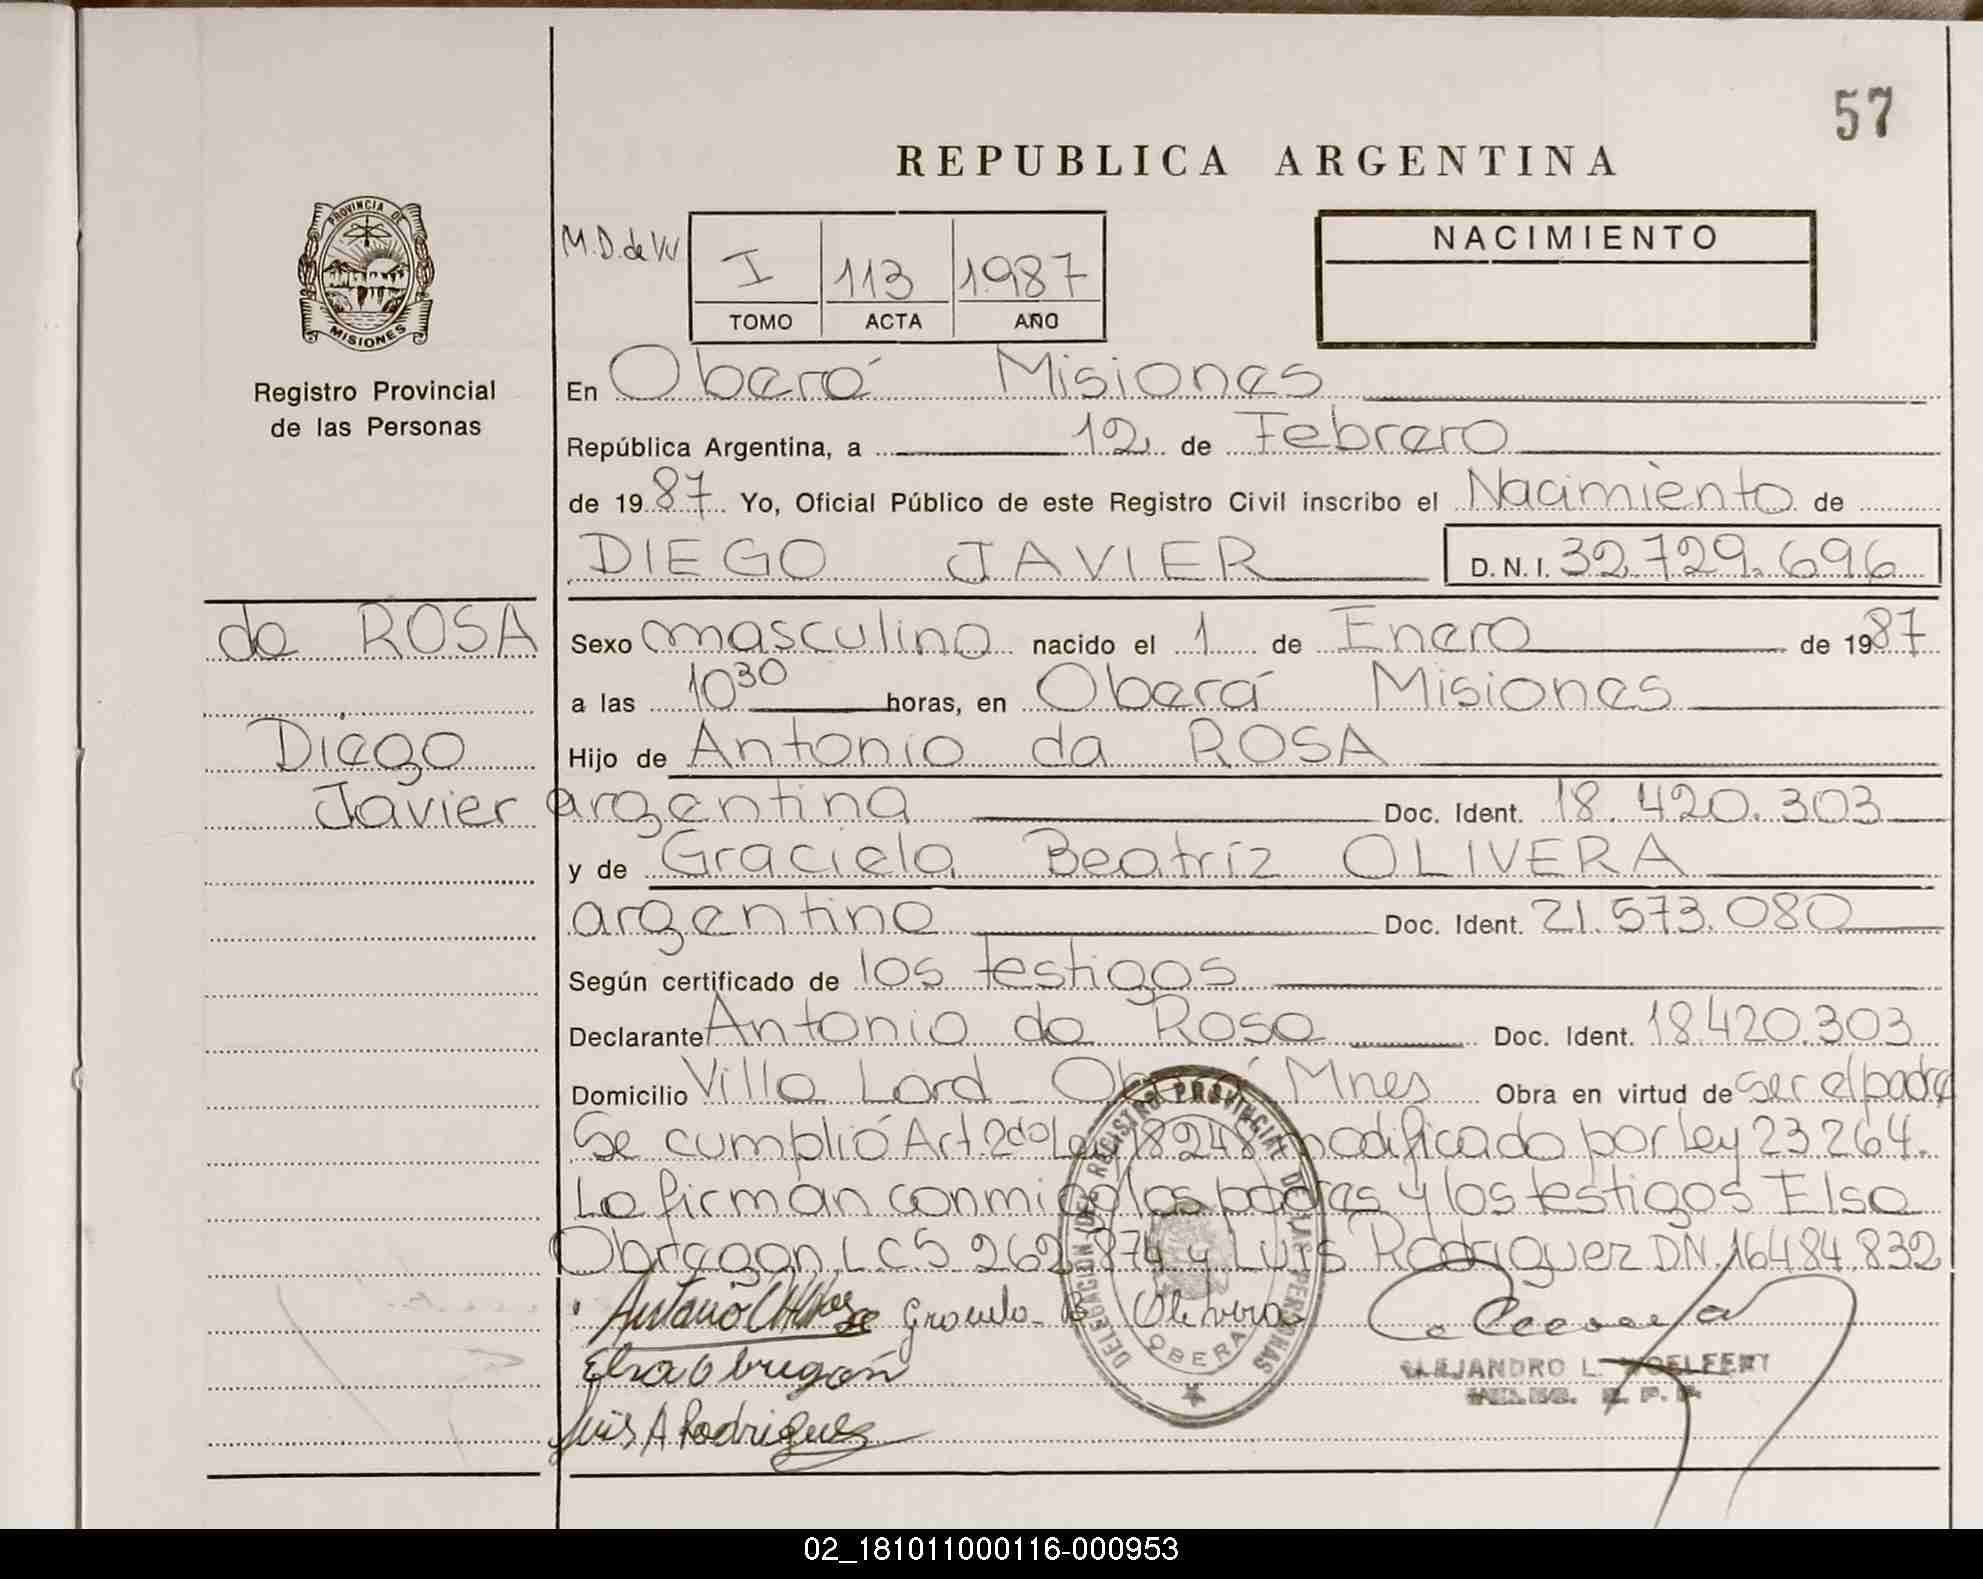 57
REPUBLICA ARGENTINA
PROVINCIA DE
MISIONES
Registro Provincial
de las Personas
M.D. de
I 113 1987
TOMO ACTA AÑO
NACIMIENTO
En Oberá Misiones
República Argentina, a 12 de Febrero
de 1987 Yo, Oficial Público de este Registro Civil inscribo el Nacimiento de
DIEGO JAVIER D.N.I. 32.729.696
da ROSA
Diego
Javier
Sexo masculino nacido el 1 de Enero de 1987
a las 10 30 horas, en Oberá Misiones
Hijo de Antonio da ROSA
argentina Doc. Ident. 18.420.303
y de Graciela Beatríz OLIVERA
argentina Doc. Ident. 21.573.080
Según certificado de los testigos
Declarante Antonio da Rosa Doc. Ident. 18.420.303
Domicilio Villa Lord Oberá Mnes Obra en virtud de ser el padre
Se cumplió Art. 2do Ley 18248 modificado por ley 23264.
La firman conmigo los padres y los testigos Elsa
Obregon L C 5.262.874 y Luis Rodriguez DN. 16484.832
Graciela B Olivera
Elsa Obregón
Luis A Rodriguez
DELEGACION DEL REGISTRO PROVINCIAL DE LAS PERSONAS
OBERA
ALEJANDRO L.
02_181011000116-000953